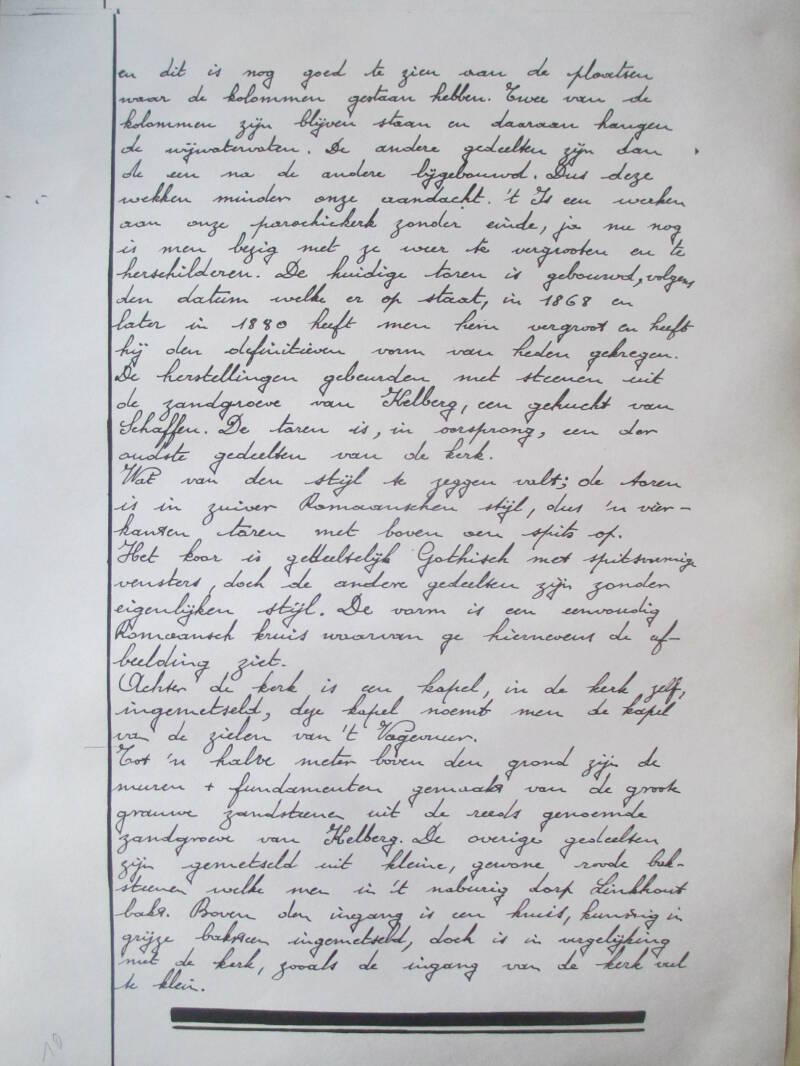 en dit is nog goed te zien aan de plaatsen
waar de kolommen gestaan hebben. Twee van de
kolommen zijn blijven staan en daaraan hangen
de wijwatervaten. De andere gedeelten zijn dan
de een na de andere bijgebouwd. Dus deze
wekken minder onze aandacht. 't Is een werken
aan onze parochiekerk zonder einde, ja nu nog
is men bezig met ze weer te vergrooten en te
herschilderen. De huidige toren is gebouwd, volgens
den datum welke er op staat, in 1868 en
later in 1880 heeft men hem vergroot en heeft
hij den definitieven vorm van heden gekregen.
De herstellingen gebeurden met steenen uit
de zandgroeve van Kelberg, een gehucht van
Schaffen. De toren is, in oorsprong, een der
oudste gedeelten van de kerk.
Wat van den stijl te zeggen valt; de toren
is in zuiver Romaanschen stijl, dus 'n vier-
kanten toren met boven een spits op.
Het koor is gedeeltelijk Gothisch met spitsvormige
vensters, doch de andere gedeelten zijn zonder
eigenlijken stijl. De vorm is een eenvoudig
Romaansch kruis waarvan ge hiernevens de af-
beelding ziet.
Achter de kerk is een kapel, in de kerk zelf,
ingemetseld, deze kapel noemt men de kapel
van de zielen van 't Vagevuur.
Tot 'n halve meter boven den grond zijn de
muren + fundamenten gemaakt van de groote
grauwe zandsteenen uit de reeds genoemde
zandgroeve van Kelberg. De overige gedeelten
zijn gemetseld uit kleine, gewone roode bak-
steenen welke men in 't naburig dorp Linkhout
bakt. Boven den ingang is een kruis, kunstig in
grijze baksteen ingemetseld, doch is in vergelijking
met de kerk, zooals de ingang van de kerk veel
te klein.
10